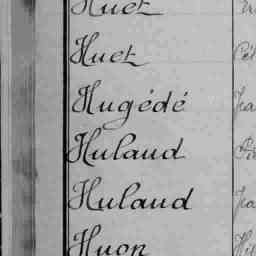 Huet
Huet
Hugédé
Hulaud
Hulaud
Huon